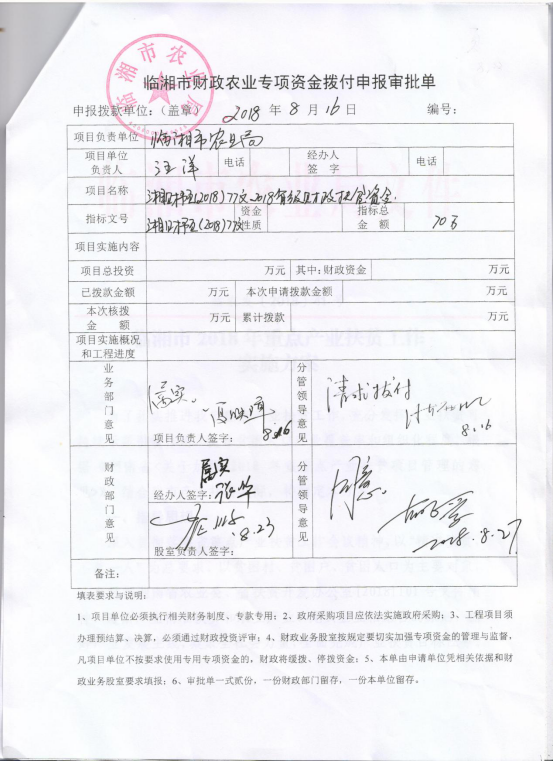 临湘市农业局
临湘市财政农业专项资金拨付申报审批单
申报拨款单位：（盖章） 2018 年 8 月 16 日 编号：
项目负责单位 临湘市农业局
项目单位负责人 汪洋 电话 经办人签字 电话
项目名称 湘财预(2018)77文2018省级财政扶贫资金
指标文号 湘财预(2018)77文 资金性质 指标总金额 70万
项目实施内容
项目总投资 万元 其中：财政资金 万元
已拨款金额 万元 本次申请拨款金额 万元
本次核拨金额 万元 累计拨款 万元
项目实施概况和工程进度
业务部门意见 属实。 项目负责人签字： 8.16 分管领导意见 请求拨付 8.16
财政部门意见 属实 经办人签字： 8.23 股室负责人签字： 分管领导意见 同意 2018.8.27
备注：
填表要求与说明：
1、项目单位必须执行相关财务制度、专款专用；2、政府采购项目应依法实施政府采购；3、工程项目须
办理预结算、决算，必须通过财政投资评审；4、财政业务股室按规定要切实加强专项资金的管理与监督，
凡项目单位不按要求使用专用专项资金的，财政将缓拨、停拨资金；5、本单由申请单位凭相关依据和财
政业务股室要求填报；6、审批单一式贰份，一份财政部门留存，一份本单位留存。